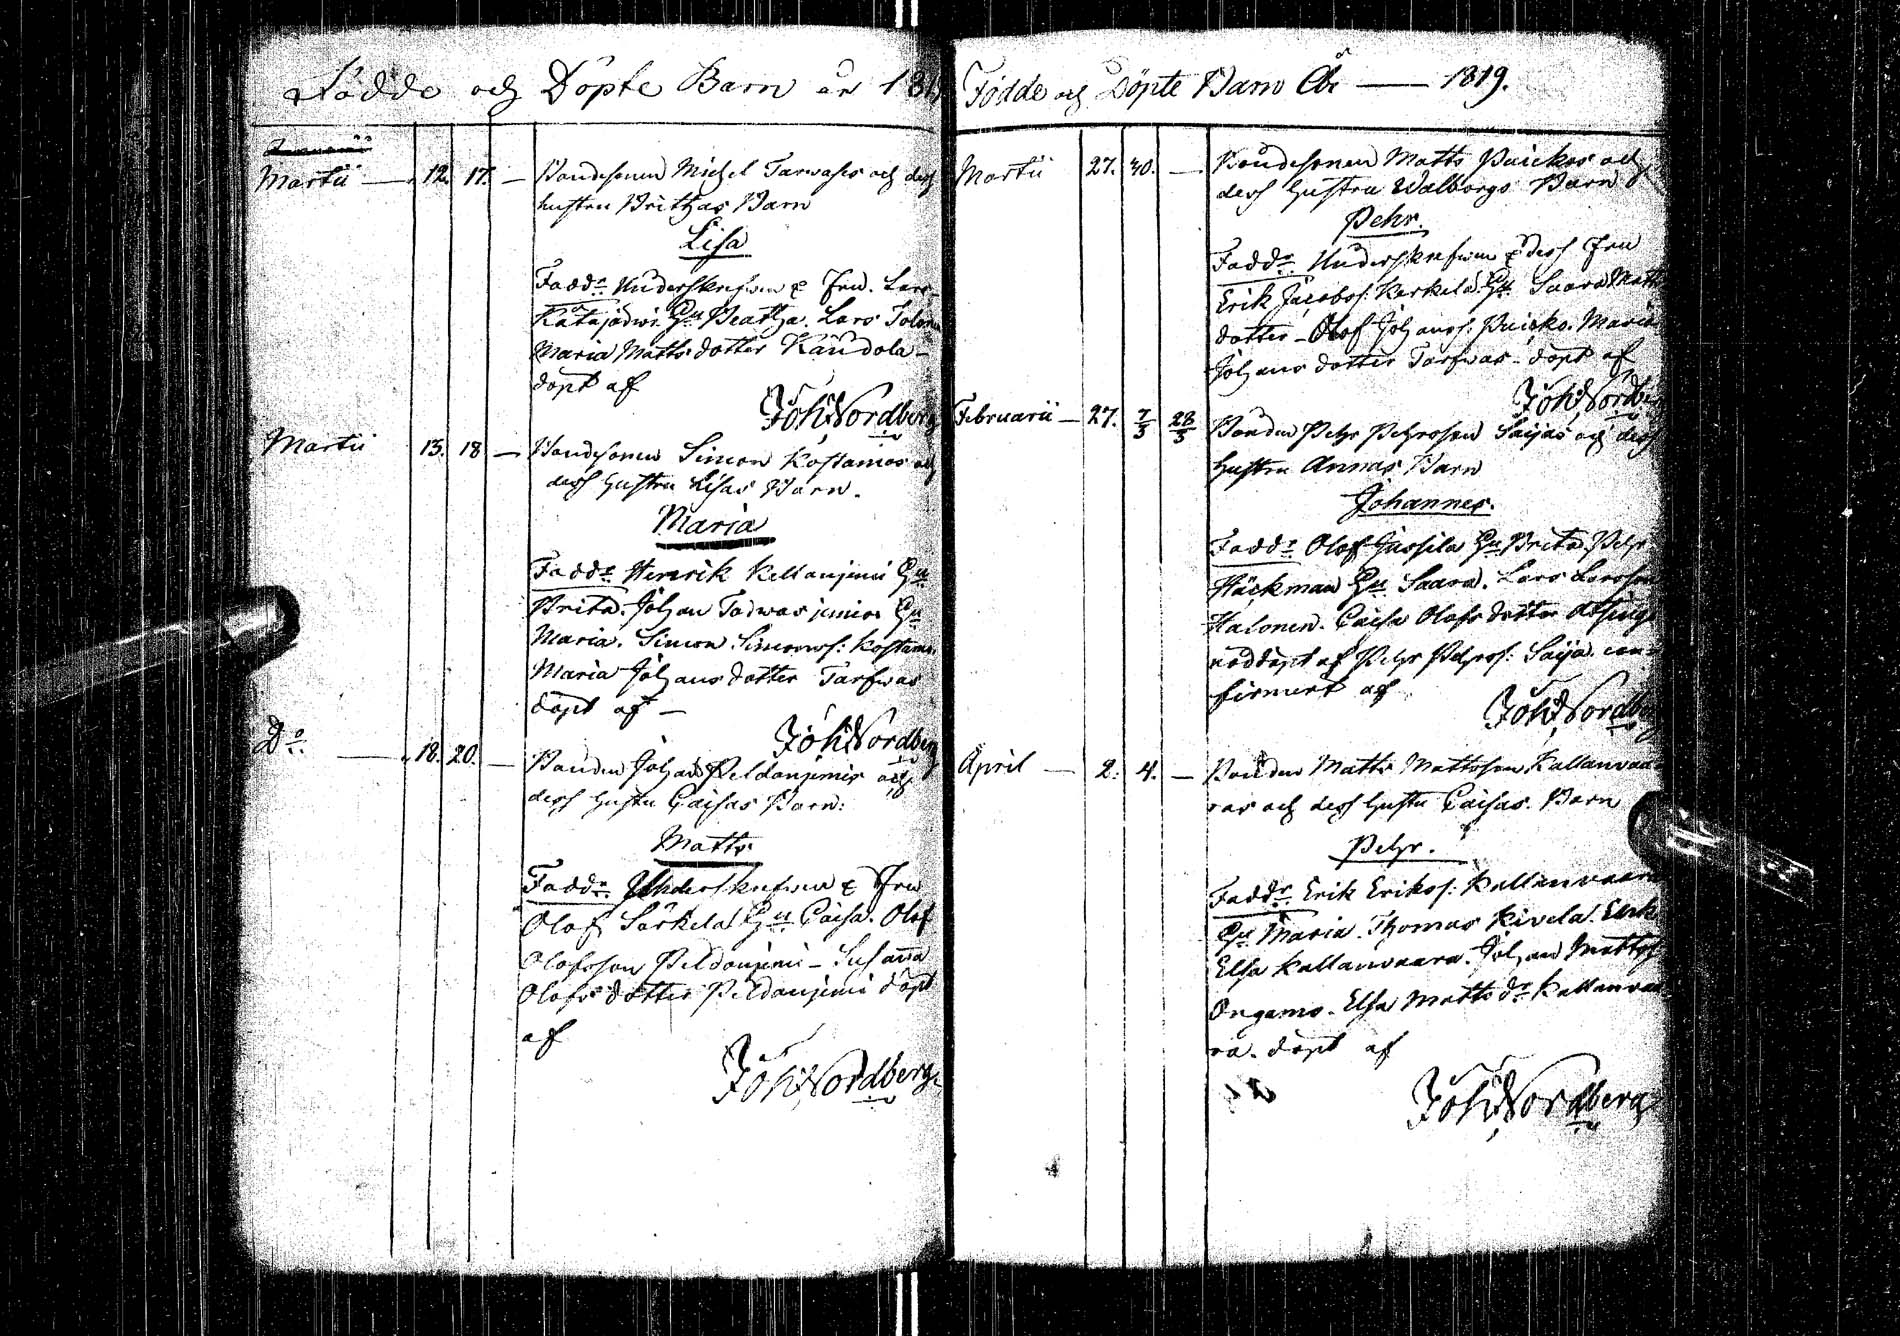 Födde och Döpte Barn år 181
Januarii
Martii — 12. 17. — Bondesonen Michel Tarwases och dess
hustru Brithas Barn
Lisa
Fadd:r Underskrefwen & Fru. Lars
Katajadwi. Hu Beatha. Lars Tolonen
Maria Matts dotter Kandola –
döpt af
Joh: Nordberg
Martii 13. 18 — Bondesonen Simon Kostamos och
dess hustru Lisas Barn.
Maria
Fadd:r Henrik Kellanjemi Hu
Brita. Johan Tarwas junior Hu
Maria. Simon Simonss: Kostamo
Maria Johans dotter Tarfwas
döpt af —
Joh: Nordberg
D:o — 18. 20. — Bonden Johan Peldonjemis och
dess hustru Caisas Barn:
Matts
Fadd:r Underskrefwen & Fru
Olof Särkela Hu Caisa. Olof
Olofsson Peldonjemi – Susanna
Olofs dotter Peldonjemi döpt
af
Joh: Nordberg
Födde och Döpte Barn År — 1819.
Martii 27. 30. — Bondesonen Matts Puickos och
dess hustru Walborgs Barn
Pehr.
Fadd:r Underskrefwen & dess Fru
Erik Jacobss: Kerkela Hu Saara Matts
dotter – Olof Johanss: Puicko. Maria
Johans dotter Tarfwas – döpt af
Joh: Nordberg
Februarii — 27. 7/3 28/3 Bonden Pehr Pehrsson Saijas och dess
hustru Annas Barn
Johannes.
Fadd:r Olof Jussila Hu Brita. Pehr
Häckman Hu Saara. Lars Larsson
Halonen. Caisa Olofs dotter
nöddöpt af Pehr Pehrss: Saija. con-
firmert af
Joh: Nordberg
April — 2. 4. — Bonden Matts Mattsson Kallanvaa-
ras och dess hustru Caisas. Barn
Pehr.
Fadd:r Erik Erikss: Kallanvaara
Hu Maria. Thomas Kivela. Erik
Elsa Kallanvaara. Johan Mattss:
Ongamo. Elsa Matts d:r Kallanvaa-
ra. döpt af
Joh: Nordberg